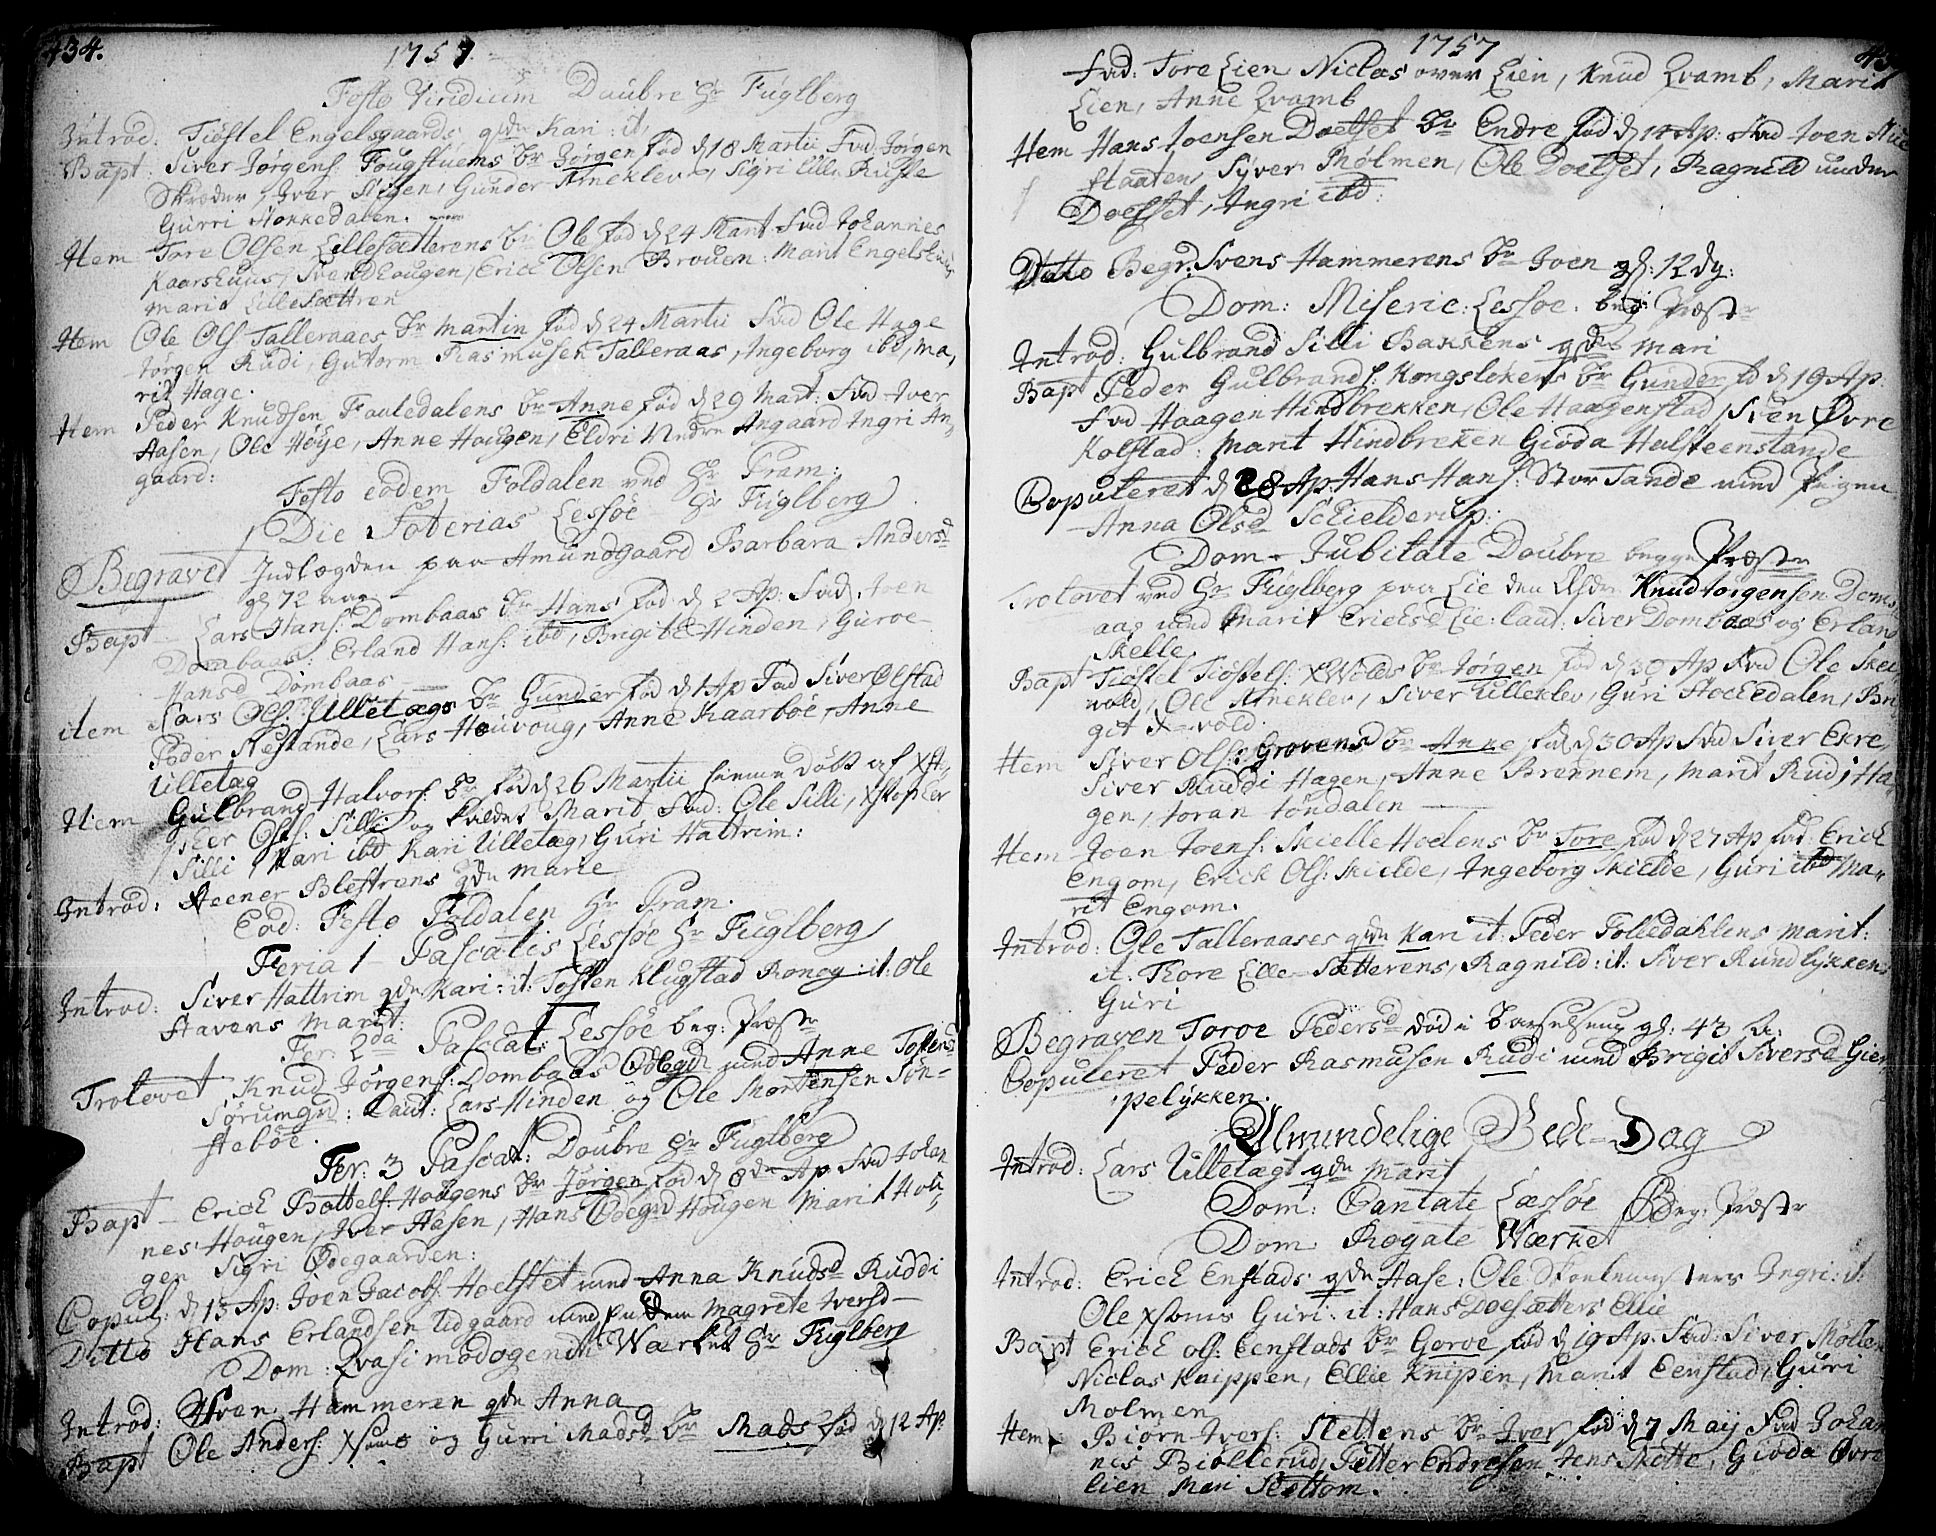 434.
1757.
Festo Viridium Daubre Hr Fuglberg
Introd. Tiøstel Engelsgaards qde Kari: it,
Bapt: Siver Jørgens: Fougstuems Br Jørgen fød d 18 Martii Fad: Jørgen
Skreder, Iver Stgen, Gunder Arneklev, Sigri Lille Ruste
Gurri Stokkedalen.
Hem Tore Olsen Lillesætterens Br Ole fød d 24 Mart Fad Johannes
Kaarshuus, Svend Hougen, Erick Olsen Brouen: Marit Engelshuus
Marit Lillesættren
Hem Ole Ols: Talleraaes Br Martin fød d 24 Martii Fad Ole Hage
Jørgen Rudi, Gutorm Rasmusen Talleraas, Ingeborg ibd, Ma,
rit Hage.
Hem Peder Knudsen Fouledalens Br Anne fød d 29 Mart: Fad Iver
Aasen, Ole Høye, Anne Hougen, Eldri Nedre Angaard Ingri An,
gaard:
Festo eodem Foldalen ved Hr Pram:
Die Soterias Lessøe Hr Fuglberg
Begravet Indlogden paa Amundgaard Barbara Andersd
gl 72 aar
Bapt Lars Hans: Dombaas Br Hans fød: d 2 Ap: Fad: Joen
Dombaas: Erland Hans: ibd, Brigite Hinden, Guroe
Hansd Dombaas
item Lars Ols: Ulletægs Br Gunder fød d 1 Ap Fad Siver Olstad
Peder Nestande, Lars Houvoug, Anne Kaarbøe, Anne
Ulletæg
Hem Gulbrand Halvors: Br fød d 26 Martii hiemme døbt af
ther Ols: Silli og kaldet Marit, Fad: Ole Silli, Xstopher
Silli, Kari ibd Kari Ulletæg, Guri Hattrim:
Introd: Steener Blestrens qde Marie
Eod: Festo Foldalen Hr Pram.
Feria 1 Pascatis Lessøe Hr Fuglberg
Introd: Siver Hattrim qde Kari: it: Tosten Klugstad Ronog: it: Ole
Stavens Marit:
Fer: 2da Pascat: Lessøe beg: Præster
Trolovet Knud Jørgens: Dombaas Ødegd med Anne Tostensd
Sørumgd: Caut: Lars Hinden og Ole Mortensen Søn-
stebøe.
Fer: 3 Pascat: Doubre Hr Fuglberg
Bapt Erick Bottels: Hougens Br Jørgen fød d 8de Ap Fad Johan
nes Hougen, Iver Aasen, Hans Ødegd Hougen Marit Hou,
gen Sigri Ødegaarden:
Copul: d 13 Ap: Joen Jacobs: Hoelstet med Anna Knudsd Ruddi
Ditto Hans Erlandsen Udgaard med Magrete Iversd
Dom: Qvasimodogeniti Wærket Hr Fuglberg
Introd: Sven Hammeren qde Anna
Bapt Ole Anders: og Gurri Madsd Br Mads fød d 12 Ap:
1757
Fad: Tore Lien Niclas over Lien, Knud Qvamb, Marit
Lien, Anne Qvamb
Hem Hans Joensen Doelset Br Endre fød d 14 Ap: Fad Joen
staaten, Syver Mølmen, Ole Doelset, Ragnild under
Doelset, Ingri ibd:
Ditto Begr. Svens Hammerens Br Joen gl: 12 dg:
Dom: Miseric: Lessoe. beg Præster
Introd: Gulbrand Silli Bakkens qde Mari
Bapt Peder Gulbrands: Kongslokens Br Gunder fød d 19 Ap:
Fad Haagen Hindbrekken, Ole Haagenstad, Sven Øvre
Kolstad: Marit Hindbreken Gioda Halsteenstande
Copuleret d 28 Ap: Hans Hans: Stor Tande med Pigen
Anna Olsd Schielderup:
Dom Jubilate Doubre begge Præster
Trolovet ved Hr Fuglberg paa Lie den Knud Jorgensen Domb,
aas med Marit Ericksd Lie: Caut: Siver Dombaas og Erland
Skelle.
Bapt Tiøstel Tiøstels: Xwolds Br Jørgen fød d 30 Ap Fad Ole Skei,
wold, Ole Arneklev, Siver Lilleklev, Guri Stockedalen, Bri,
git X-vold.
Hem Siver Ols: Grovens Br Anne fød d 30 Ap Fad Siver Ekre
Siver Ruddi Hagen, Anne Brennem, Marit Rudi Ha,
gen, Joran Jøndalen
Hem Joen Joens: Skielle Hoelens Br Tore fød d 27 Ap Fad: Erick
Engom, Erick Ols: Skielde, Ingeborg Skielde, Guri ibd Ma,
rit Engom.
Introd: Ole Talleraases qde Kari it: Peder Folledahlens Marit:
it: Thore Lille-Sætterens, Ragnild: it: Siver Rundlykkens
Guri
Begraven Toroe Pedersd død i Barselseng gl: 43 a:
Copuleret Peder Rasmusen Rudi med Brigit Siversd Gier,
pelykken.
Almindelige Bede-Dag
Introd: Lars Ulletægs qde Marit
Dom: Cantate Læssøe Beg: Præster
Dom: Rogate Wærket
Introd: Erich Enstads qde Aase: Ole Ingri: it:
Ole Guri: it: Hans Doesætters Ellie
Bapt Erich Ols: Eenstads Br Goroe fød d 19 Ap: Fad: Siver Mølmen
Niclas Knippen, Ellie Knipen, Marit Eenstad, Guri
Mølmen
Hem Biørn Ivers: Slettens Br Iver fød d 7 Maij Fad Johan
nis Biøllerud, Petter Endresen, Jens Slette, Gioda Øvre
Lien Mari Slettom.